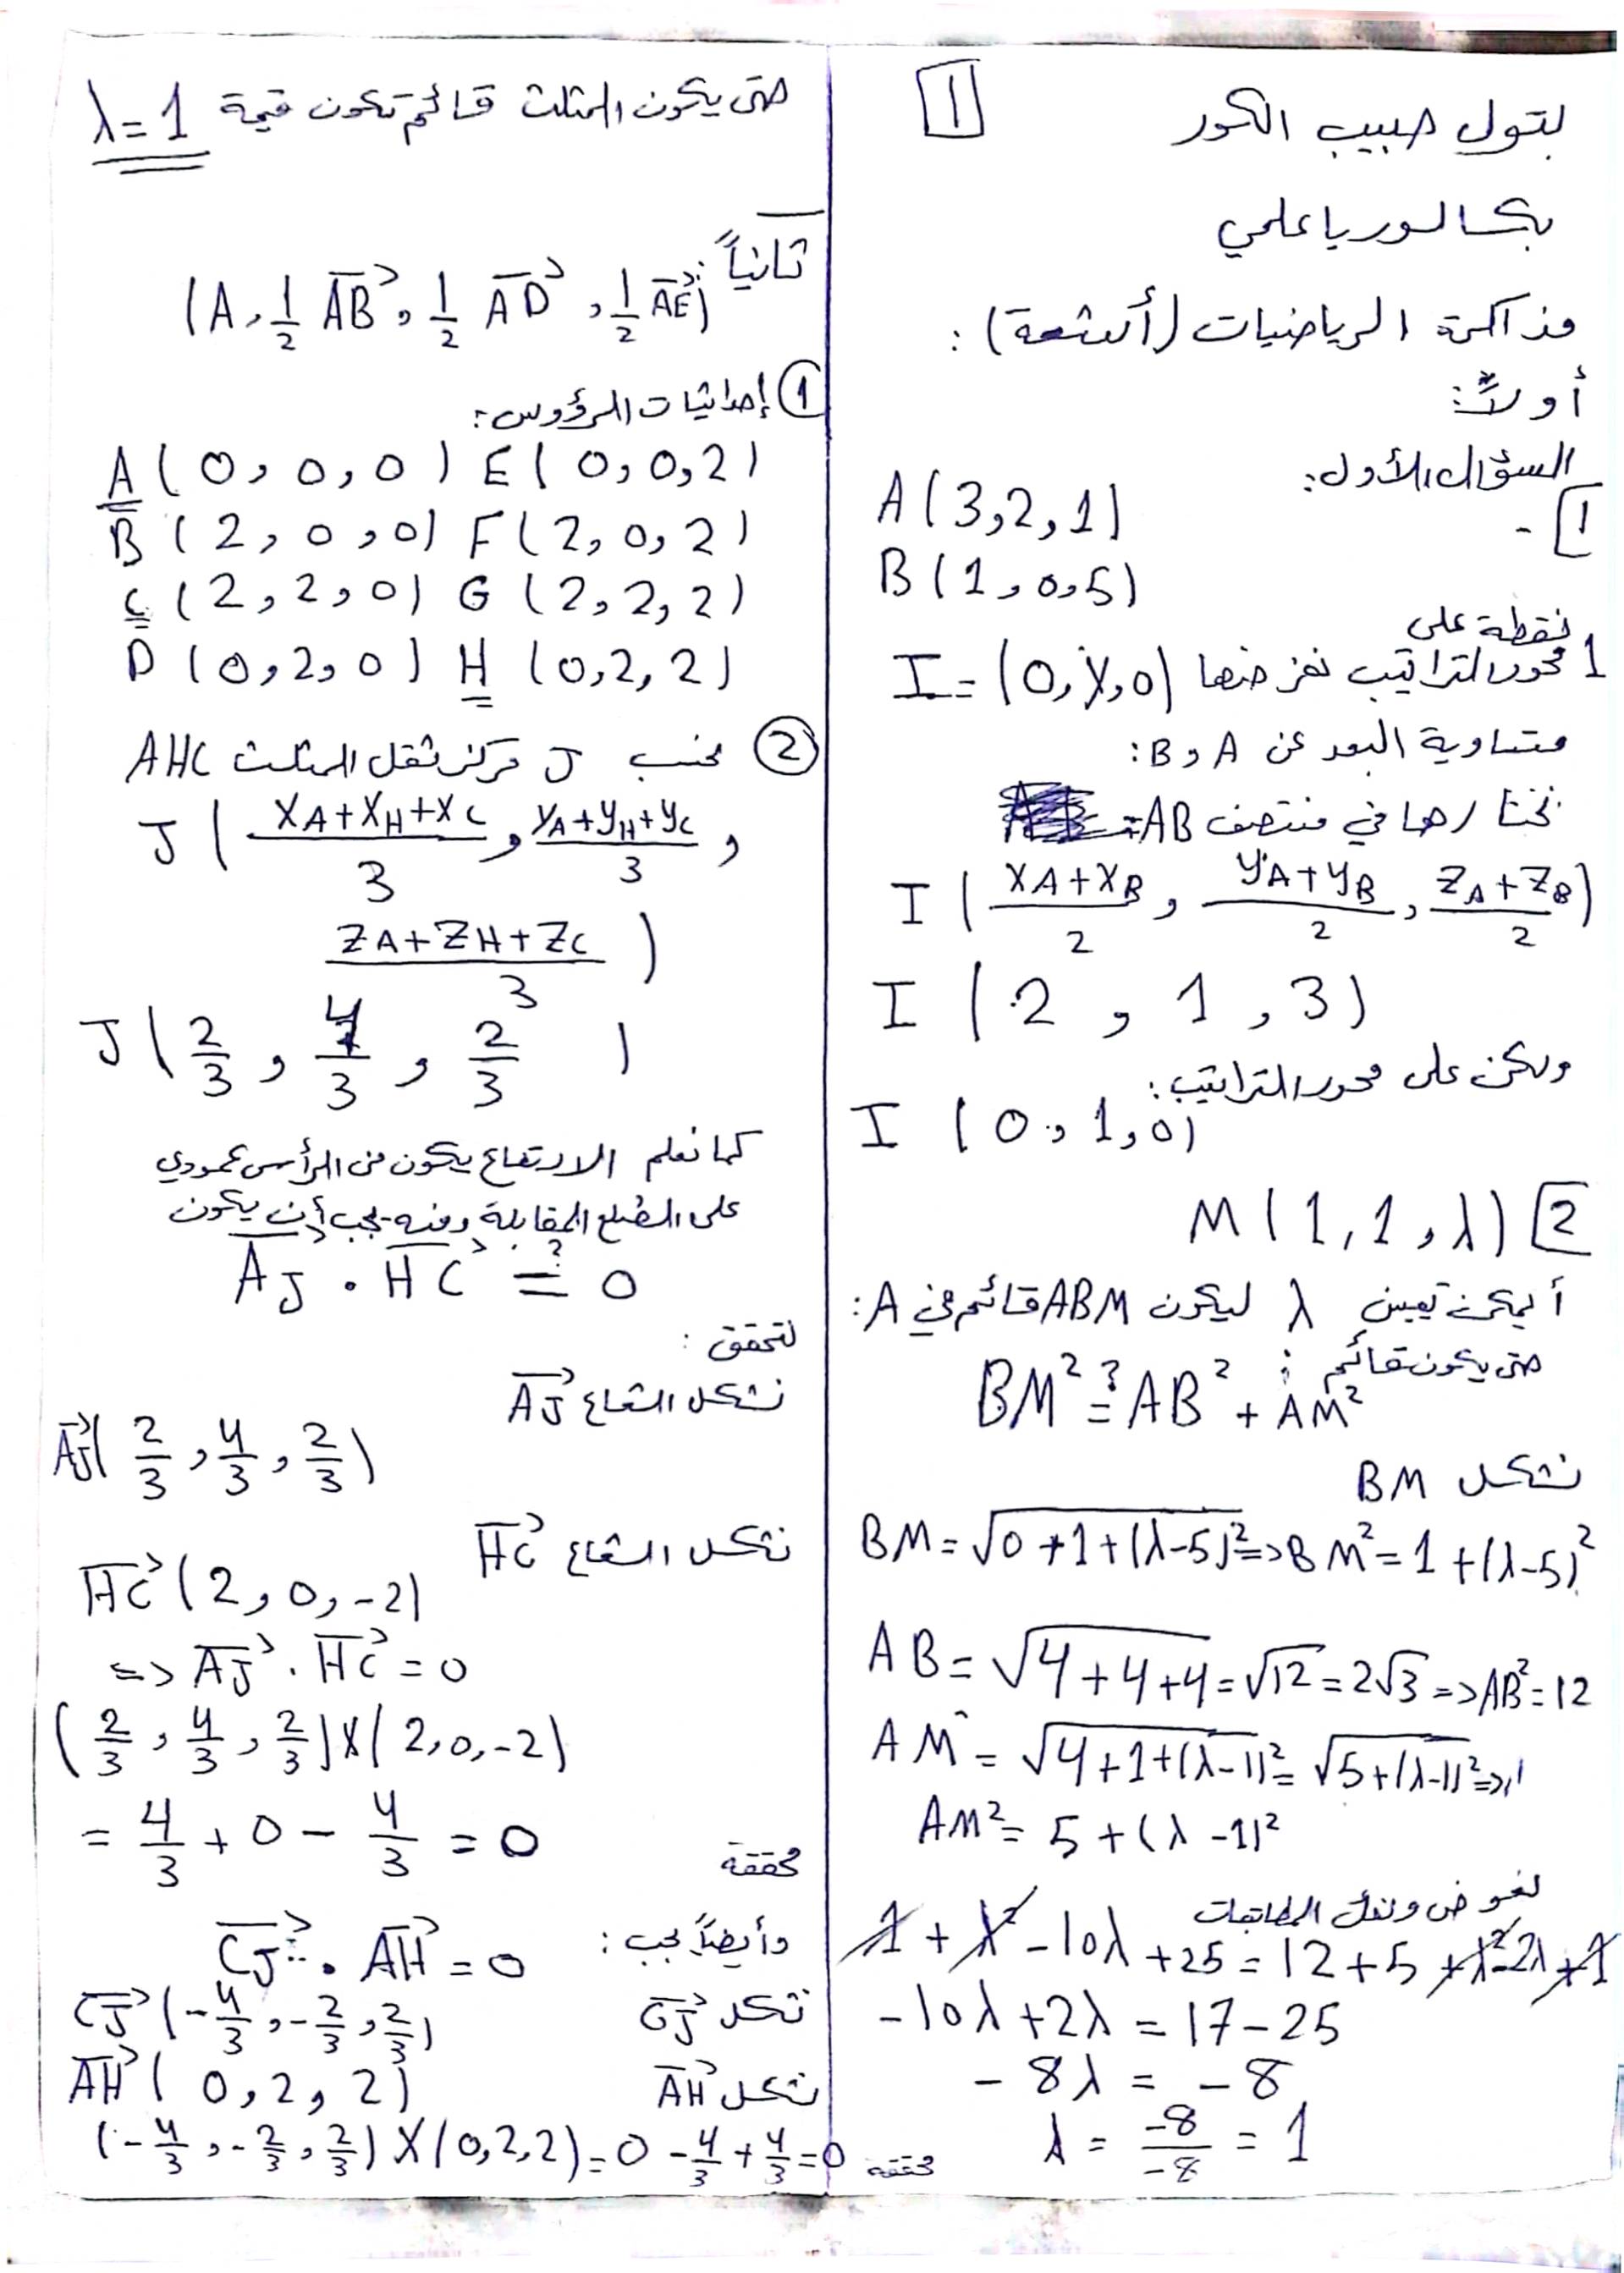 بتول حبيب الكور
1
بكالوريا علمي
مذاكرة الرياضيات (أشعة):
أولاً:
السؤال الأول:
1 -
A(3,2,1)
B(1,0,5)
1 نقطة على
محور التراتيب نفرضها I=(0,y,0)
متساوية البعد عن A و B:
نختارها في منتصف AB =
I( (xA+xB)/2 , (yA+yB)/2 , (zA+zB)/2 )
I(2, 1, 3)
ولكن على محور التراتيب:
I(0, 1, 0)
2 M(1,1,λ)
أيمكن تعيين λ ليكون ABM قائم في A:
حتى يكون قائم:
BM² ?= AB² + AM²
نشكل BM
BM = √(0+1+(λ-5)²) => BM² = 1+(λ-5)²
AB = √(4+4+4) = √12 = 2√3 => AB² = 12
AM = √(4+1+(λ-1)²) = √(5+(λ-1)²) =>
AM² = 5+(λ-1)²
نعوض ونفك المطابقات
1+λ²-10λ+25 = 12+5+λ²-2λ+1
-10λ+2λ = 17-25
-8λ = -8
λ = -8/-8 = 1
حتى يكون المثلث قائم تكون قيمة λ=1
ثانياً:
(A, 1/2 AB, 1/2 AD, 1/2 AE)
1 إحداثيات الرؤوس:
A(0,0,0) E(0,0,2)
B(2,0,0) F(2,0,2)
C(2,2,0) G(2,2,2)
D(0,2,0) H(0,2,2)
2 نحسب J مركز ثقل المثلث AHC
J( (xA+xH+xC)/3 , (yA+yH+yC)/3 ,
(zA+zH+zC)/3 )
J( 2/3 , 4/3 , 2/3 )
كما نعلم الارتفاع يكون من الرأس عمودي
على الضلع المقابلة ومنه يجب أن يكون
AJ · HC ?= 0
لتحقق:
نشكل الشعاع AJ
AJ( 2/3 , 4/3 , 2/3 )
نشكل الشعاع HC
HC(2, 0, -2)
=> AJ · HC = 0
( 2/3 , 4/3 , 2/3 )×( 2,0,-2)
= 4/3 + 0 - 4/3 = 0 محققة
وأيضاً يجب: CJ · AH = 0
نشكل CJ CJ( -4/3 , -2/3 , 2/3 )
نشكل AH AH( 0, 2, 2)
( -4/3 , -2/3 , 2/3 )×(0,2,2) = 0 - 4/3 + 4/3 = 0 محققة